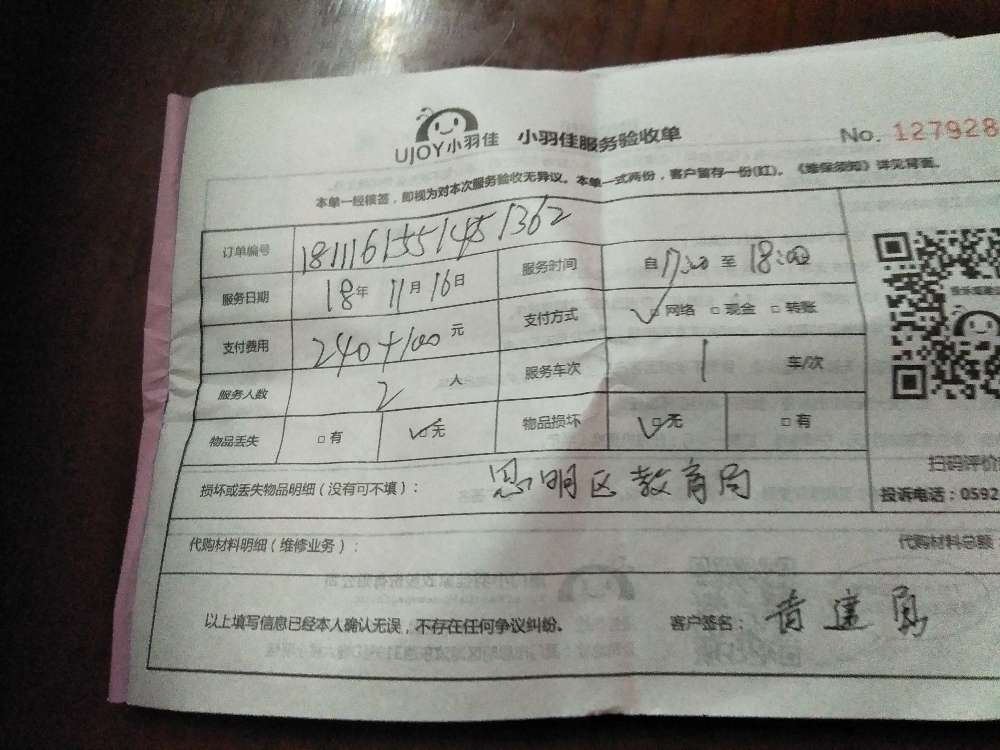 UJOY小羽佳 小羽佳服务验收单 No. 127928
本单一经核签，即视为对本次服务验收无异议。本单一式两份，客户留存一份(红)。《维保须知》详见背面。
订单编号 1811161551451362
服务日期 18年 11月 16日 服务时间 自 17:00 至 18:00
支付费用 240+100 元 支付方式 ☑网络 □现金 □转账
服务人数 2 人 服务车次 1 车/次
物品丢失 □有 ☑无 物品损坏 ☑无 □有
扫码评价
损坏或丢失物品明细（没有可不填）： 思明区教育局
投诉电话：0592
代购材料明细（维修业务）： 代购材料总额：
以上填写信息已经本人确认无误，不存在任何争议纠纷。 客户签名：